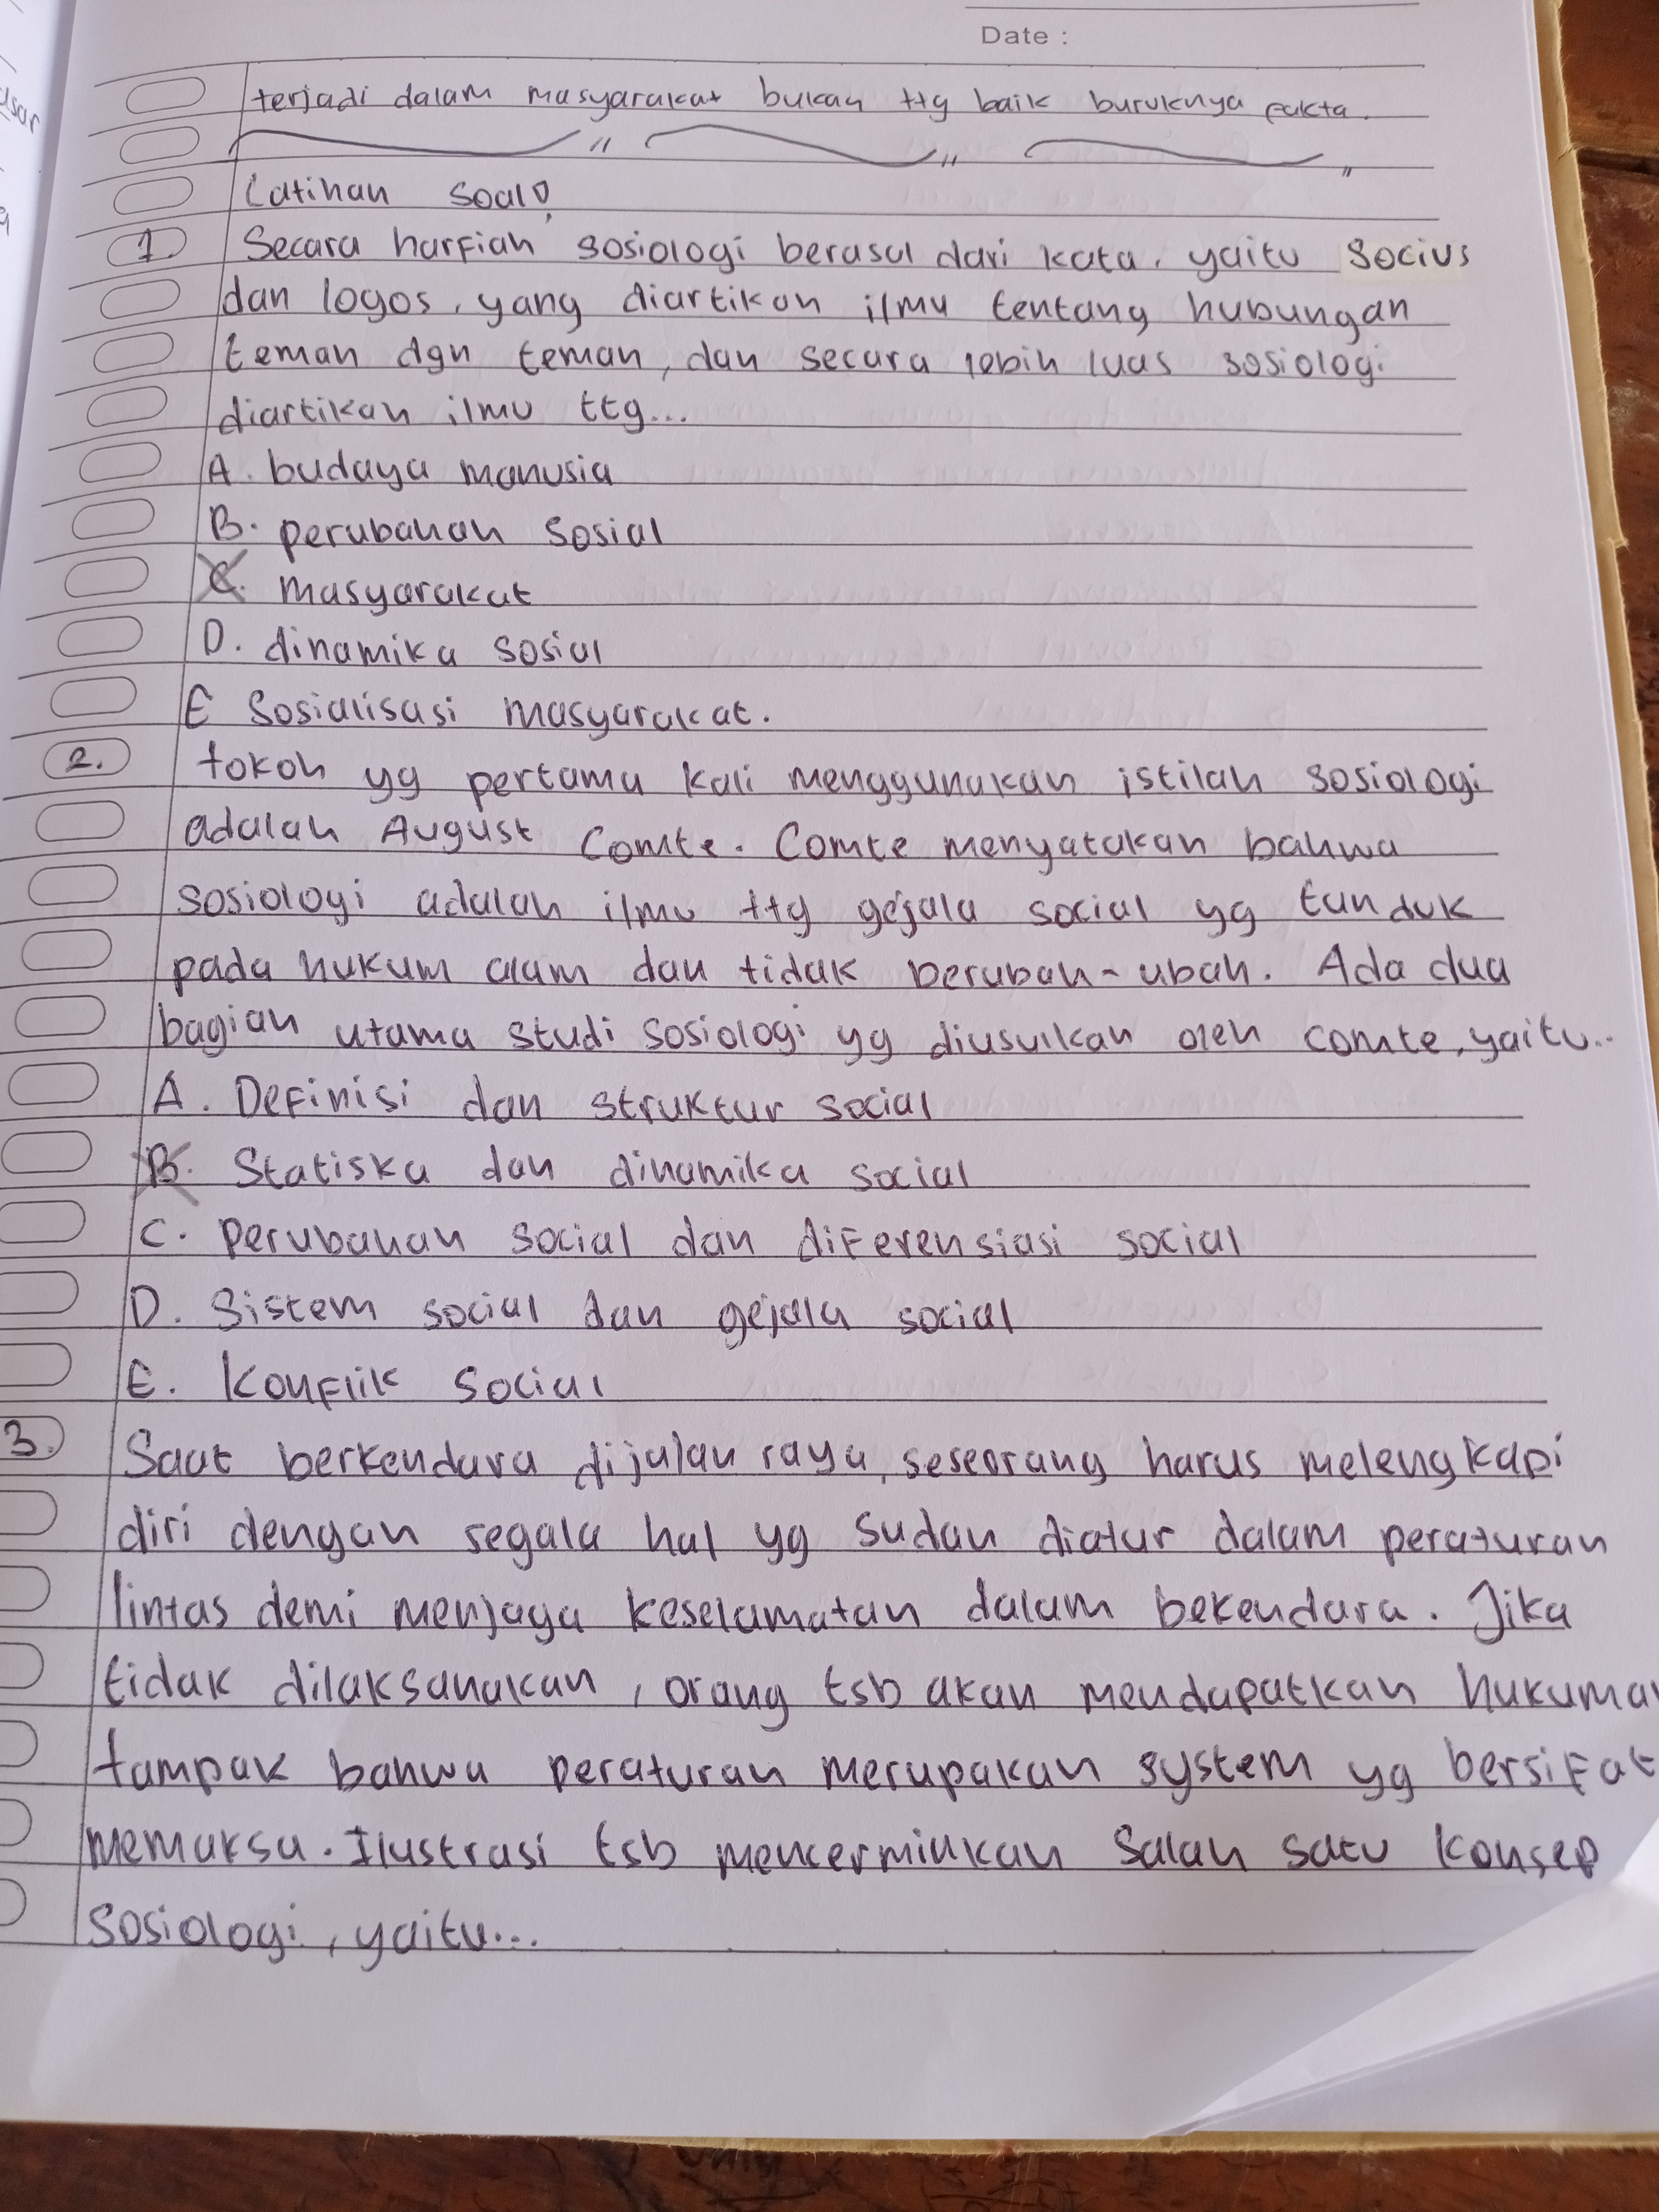 Date :
terjadi dalam masyarakat bukan ttg baik buruknya fakta.
Latihan Soal!
1 Secara harfiah sosiologi berasal dari kata, yaitu Socius
dan logos, yang diartikan ilmu tentang hubungan
teman dgn teman, dan secara lebih luas sosiologi
diartikan ilmu ttg...
A. budaya manusia
B. perubahan sosial
C. masyarakat
D. dinamika sosial
E Sosialisasi masyarakat.
2. tokoh yg pertama kali menggunakan istilah sosiologi
adalah August Comte. Comte menyatakan bahwa
sosiologi adalah ilmu ttg gejala social yg tunduk
pada hukum alam dan tidak berubah-ubah. Ada dua
bagian utama studi sosiologi yg diusulkan oleh comte, yaitu..
A. Definisi dan struktur social
B. Statiska dan dinamika social
C. perubahan social dan diferensiasi social
D. Sistem social dan gejala social
E. Konflik social
3. Saat berkendara dijalan raya, seseorang harus melengkapi
diri dengan segala hal yg sudah diatur dalam peraturan
lintas demi menjaga keselamatan dalam bekendara. Jika
tidak dilaksanakan, orang tsb akan mendapatkan hukuman
tampak bahwa peraturan merupakan system yg bersifat
memaksa. Ilustrasi tsb mencerminkan salah satu konsep
sosiologi, yaitu...